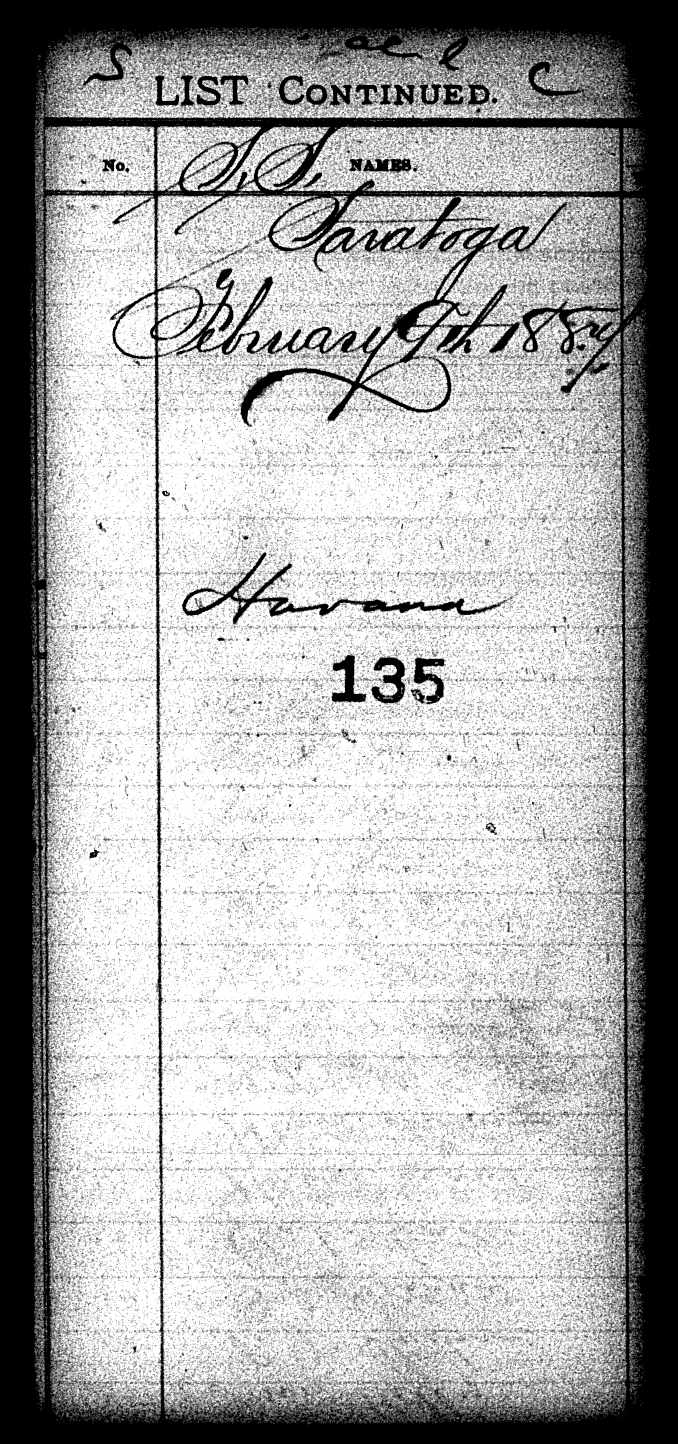 LIST CONTINUED.
No. NAMES.
S. S.
Saratoga
February 9th
Havana
135